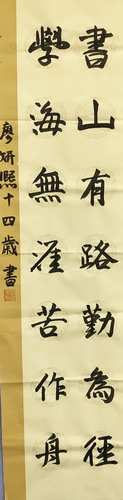 書山有路勤為徑
學海無涯苦作舟
廖妍熙十四歲書